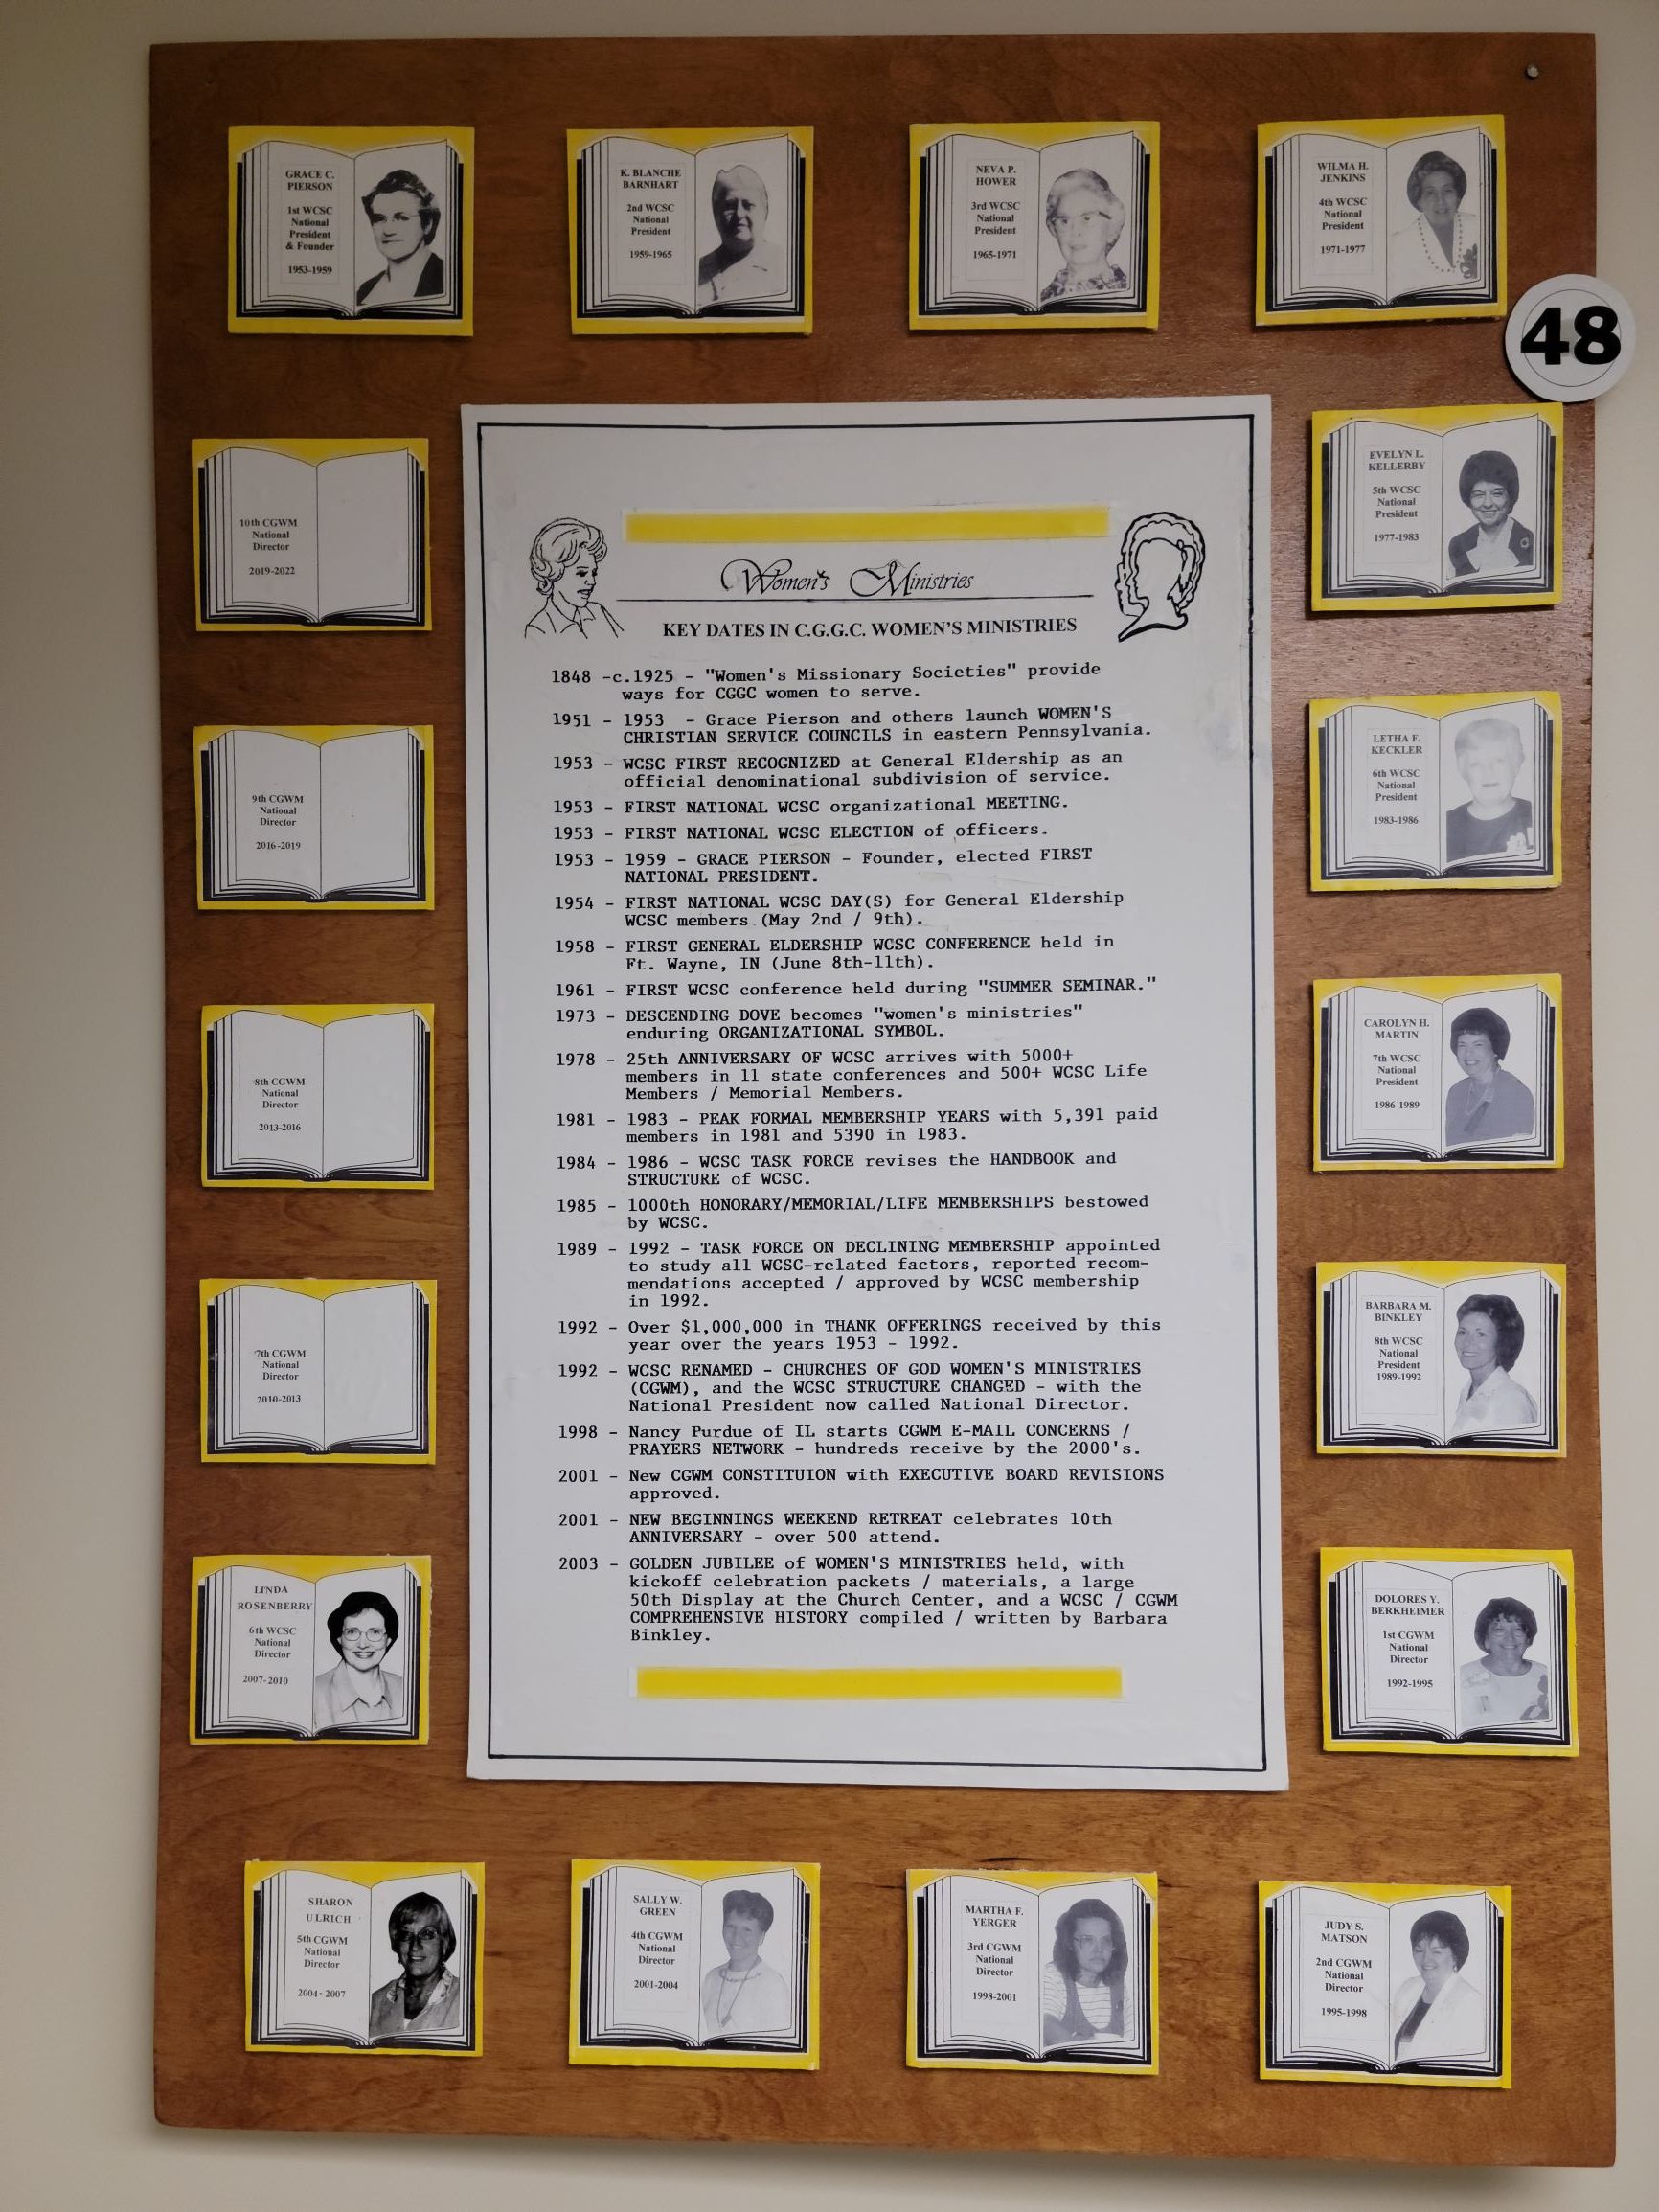 GRACE C.
PIERSON
1st WCSC
National
President
& Founder
1953-1959
K. BLANCHE
BARNHART
2nd WCSC
National
President
1959-1965
NEVA P.
HOWER
3rd WCSC
National
President
1965-1971
WILMA H.
JENKINS
4th WCSC
National
President
1971-1977
48
EVELYN L.
KELLERBY
5th WCSC
National
President
1977-1983
LETHA F.
KECKLER
6th WCSC
National
President
1983-1986
CAROLYN H.
MARTIN
7th WCSC
National
President
1986-1989
BARBARA M.
BINKLEY
8th WCSC
National
President
1989-1992
DOLORES Y.
BERKHEIMER
1st CGWM
National
Director
1992-1995
JUDY S.
MATSON
2nd CGWM
National
Director
1995-1998
MARTHA F.
YERGER
3rd CGWM
National
Director
1998-2001
SALLY W.
GREEN
4th CGWM
National
Director
2001-2004
SHARON
ULRICH
5th CGWM
National
Director
2004-2007
LINDA
ROSENBERRY
6th WCSC
National
Director
2007-2010
7th CGWM
National
Director
2010-2013
8th CGWM
National
Director
2013-2016
9th CGWM
National
Director
2016-2019
10th CGWM
National
Director
2019-2022
Women's Ministries
KEY DATES IN C.G.G.C. WOMEN'S MINISTRIES
1848 -c.1925 - "Women's Missionary Societies" provide
ways for CGGC women to serve.
1951 - 1953 - Grace Pierson and others launch WOMEN'S
CHRISTIAN SERVICE COUNCILS in eastern Pennsylvania.
1953 - WCSC FIRST RECOGNIZED at General Eldership as an
official denominational subdivision of service.
1953 - FIRST NATIONAL WCSC organizational MEETING.
1953 - FIRST NATIONAL WCSC ELECTION of officers.
1953 - 1959 - GRACE PIERSON - Founder, elected FIRST
NATIONAL PRESIDENT.
1954 - FIRST NATIONAL WCSC DAY(S) for General Eldership
WCSC members (May 2nd / 9th).
1958 - FIRST GENERAL ELDERSHIP WCSC CONFERENCE held in
Ft. Wayne, IN (June 8th-11th).
1961 - FIRST WCSC conference held during "SUMMER SEMINAR."
1973 - DESCENDING DOVE becomes "women's ministries"
enduring ORGANIZATIONAL SYMBOL.
1978 - 25th ANNIVERSARY OF WCSC arrives with 5000+
members in 11 state conferences and 500+ WCSC Life
Members / Memorial Members.
1981 - 1983 - PEAK FORMAL MEMBERSHIP YEARS with 5,391 paid
members in 1981 and 5390 in 1983.
1984 - 1986 - WCSC TASK FORCE revises the HANDBOOK and
STRUCTURE of WCSC.
1985 - 1000th HONORARY/MEMORIAL/LIFE MEMBERSHIPS bestowed
by WCSC.
1989 - 1992 - TASK FORCE ON DECLINING MEMBERSHIP appointed
to study all WCSC-related factors, reported recom-
mendations accepted / approved by WCSC membership
in 1992.
1992 - Over $1,000,000 in THANK OFFERINGS received by this
year over the years 1953 - 1992.
1992 - WCSC RENAMED - CHURCHES OF GOD WOMEN'S MINISTRIES
(CGWM), and the WCSC STRUCTURE CHANGED - with the
National President now called National Director.
1998 - Nancy Purdue of IL starts CGWM E-MAIL CONCERNS /
PRAYERS NETWORK - hundreds receive by the 2000's.
2001 - New CGWM CONSTITUION with EXECUTIVE BOARD REVISIONS
approved.
2001 - NEW BEGINNINGS WEEKEND RETREAT celebrates 10th
ANNIVERSARY - over 500 attend.
2003 - GOLDEN JUBILEE of WOMEN'S MINISTRIES held, with
kickoff celebration packets / materials, a large
50th Display at the Church Center, and a WCSC / CGWM
COMPREHENSIVE HISTORY compiled / written by Barbara
Binkley.